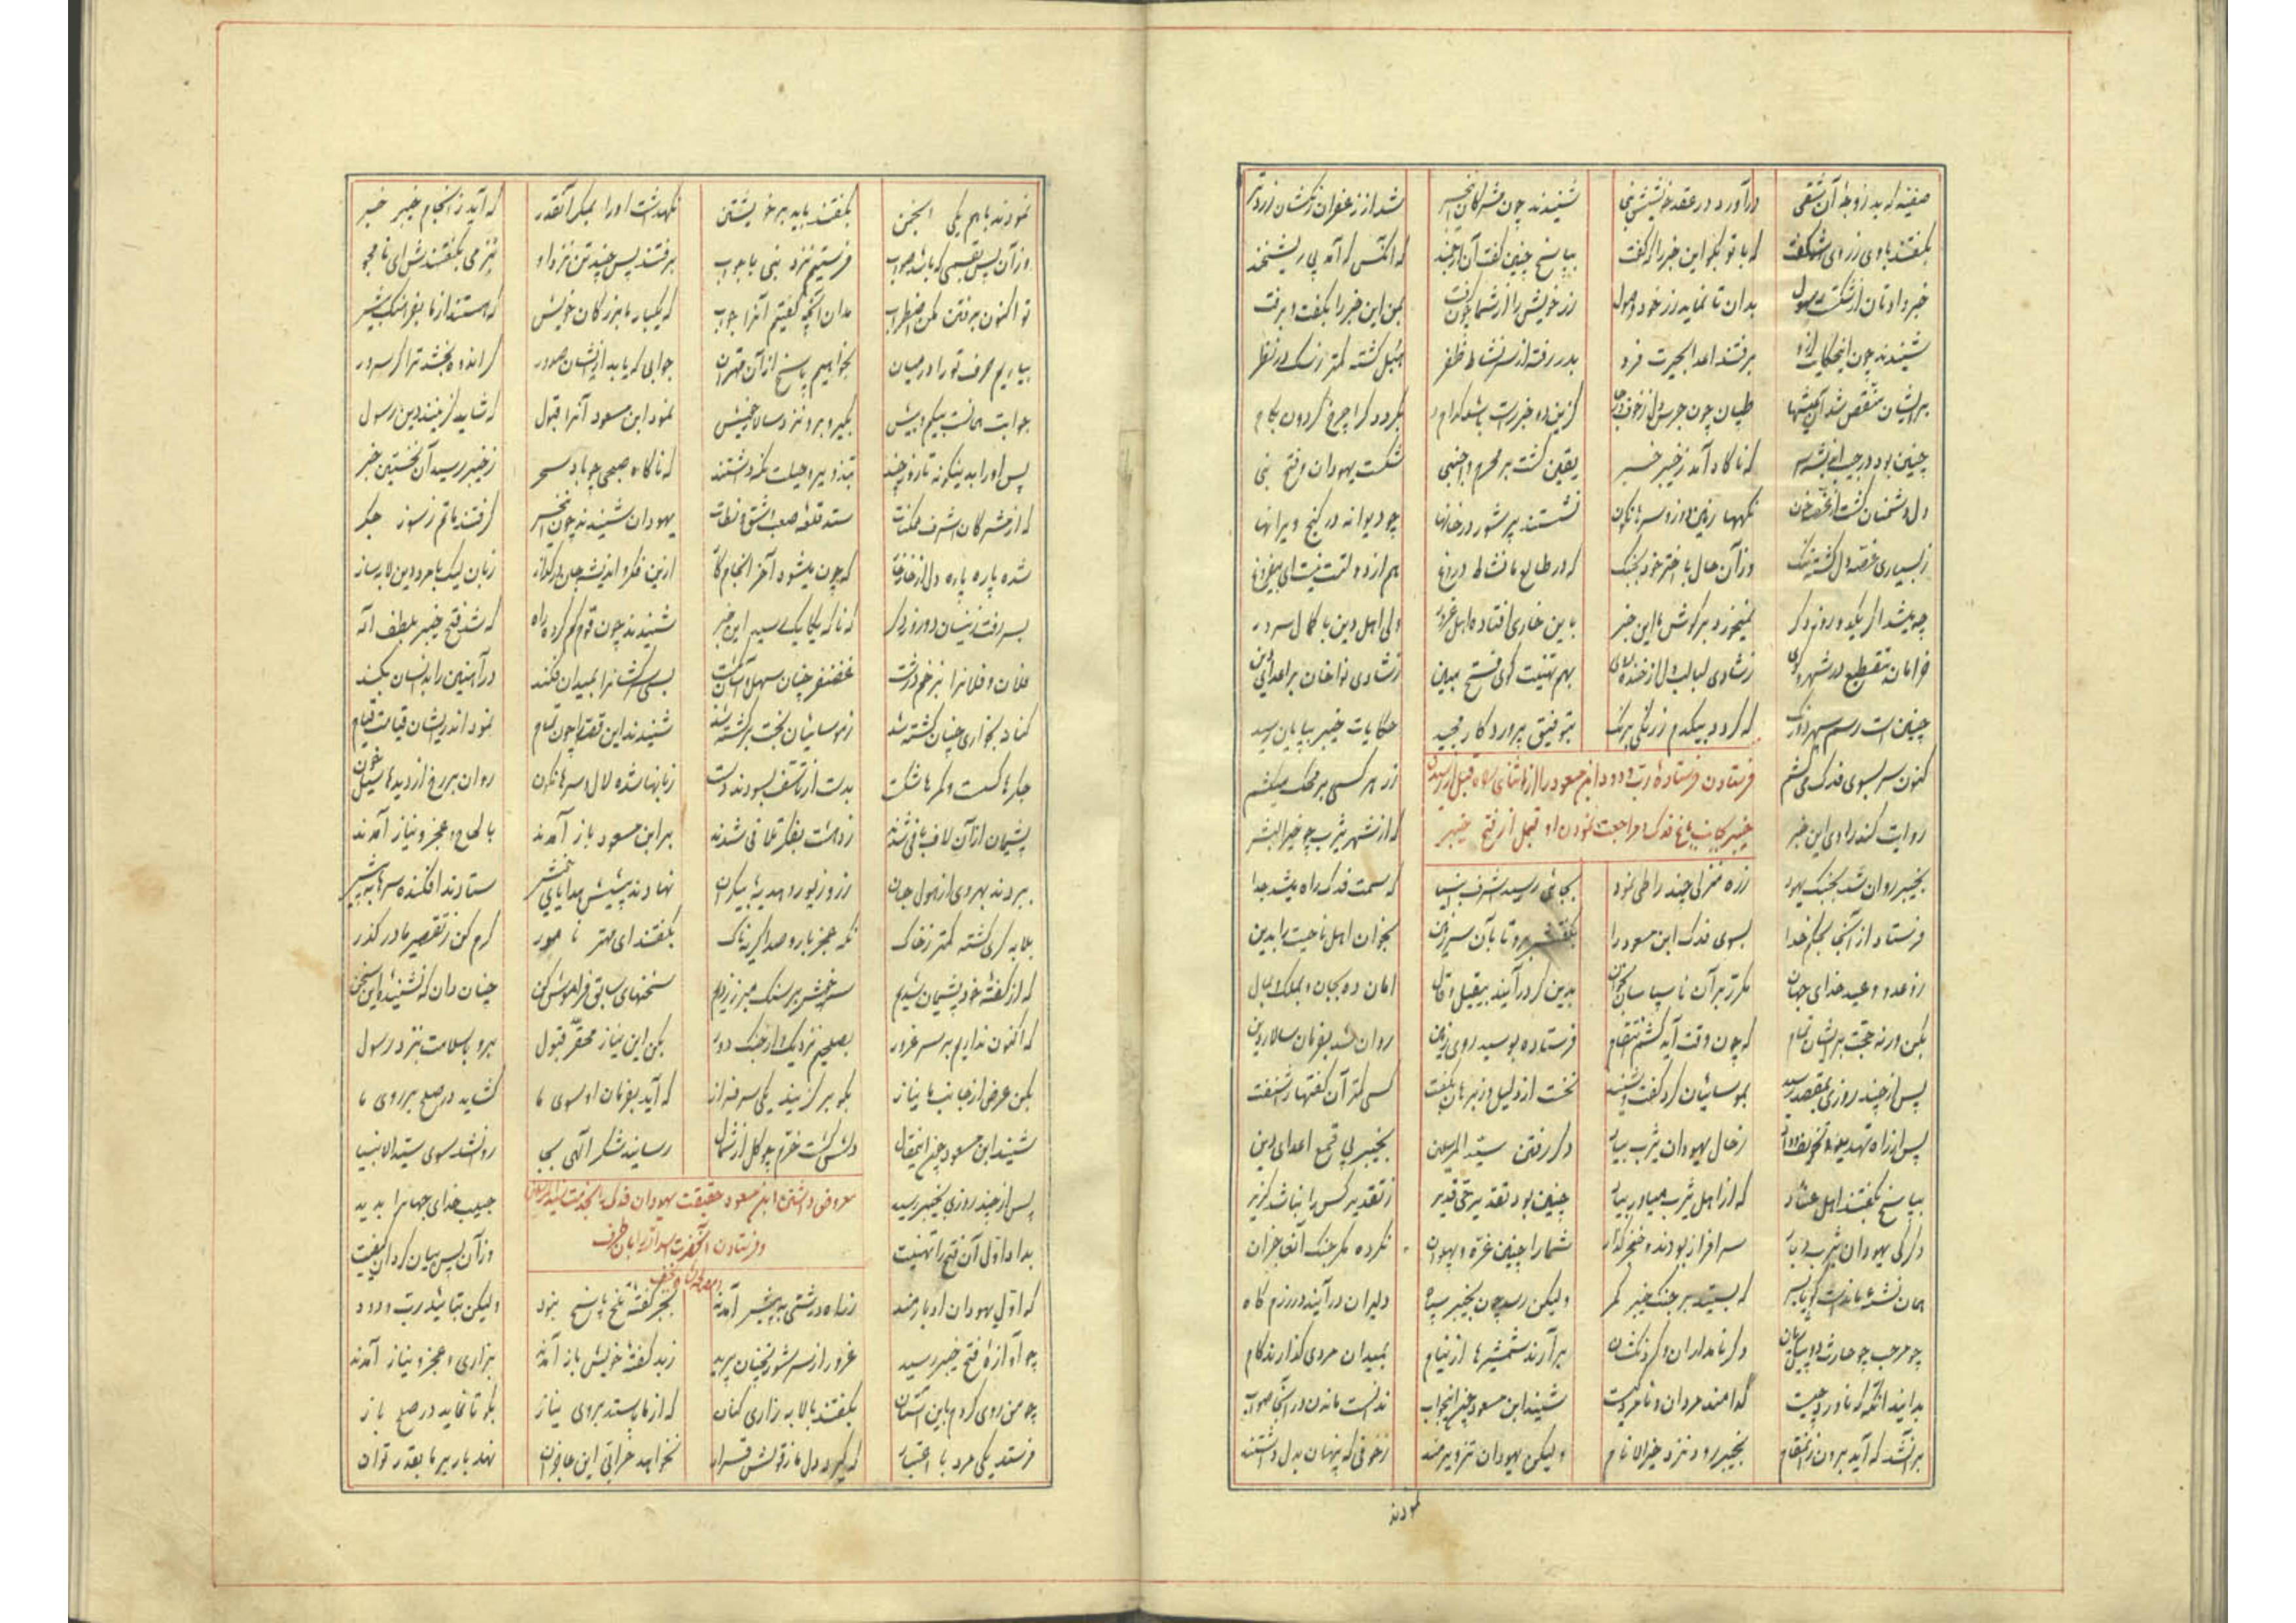 صفیه که بد زوجهٔ آن شقی درآورد در عقد خویشش نبی شنیدند چون مشرکان این خبر شد از زعفران رنگشان زردتر
بگفتند با وی ز روی شگفت که با تو بگو این خبر را که گفت بپاسخ چنین گفت آن ارجمند که آنکس که آمد پی ریشخند
خبر داد تان از شکست رسول بدان تا نماید زر خود وصول زر خویش را از شما چون گرفت بمن این خبر را بگفت و برفت
شنیدند چون این حکایات ازو برفتند اعدا بحیرت فرو بدر رفته از سر نشاط ظفر
بر ایشان منغص شد آن عیشها طپان چون جرس دل از خوف بگردد گر چرخ گردون بکام
چنین بود در که ناگاه آمد ز خیبر خبر یقین گشت بر محرم و اجنبی شکست یهودان و فتح نبی
دل دشمنان گشت از غصه خون نگهها زمین دوز و سرها نگون نشستند پر شور در خانها چو دیوانه در کنج ویرانها
ز بسیاری غصه دل گشته تنگ وز آن حال با اختر خود بجنگ که در طالع ما نشاط دروغ هم از دولتت نیست ای بیفروغ
چو میشد اگر یکدو روز دگر نمیخورد بر گوش ما این خبر باین خاری افتاده اهل غرور ولی اهل دین با کمال سرور
ز شادی لبالب دل از خنده بهم تهنیت گوی فتح مبین ز شادی نواخوان بر اعدای دین
چنین است رسم سپهر دو رنگ که گردد بیکدم ز رنگی برنگ بتوفیق پروردگار مجید حکایات خیبر بپایان رسید
کنون سر بسوی فدک می‌کشم زر هر کسی بر محک میکشم
فرستادن فرستادهٔ رب ودود ابن مسعود را از اثنای راه قبل از رسیدن
خیبر بجانب باغ فدک و مراجعت نمودن او قبل از فتح خیبر
روایت کند راوی این خبر که از شهر یثرب چو خیر البشر
بخیبر روان شد بجنگ یهود زره منزلی چند را طی نمود بجائی رسید اشرف انبیا که سمت فدک راه میشد جدا
فرستاد از آنجا بحکم خدا بسوی فدک ابن مسعود را بگفتش برو تا بآن سرزمین بخوان اهل ناحیت را بدین
ز وعد و وعید خدای جهان بدین گر درآیند بیقیل و قال امان ده بجان و بملک و بمال
بکن ورنه حجت بر ایشان تمام که چون وقت آید کشم انتقام فرستاده بوسید روی زمین روان شد بفرمان سالار دین
پس از چند روزی بمقصد رسید بموسائیان گرد گفت و شنید نخست از دلیل و ز برهان بگفت کسی گر آن گفتها را شنفت
پس از راه تهدید ز حال یهودان یثرب بیاد دگر رفتن سید المرسلین بخیبر پی قمع اعدای دین
بپاسخ بگفتند اهل عناد که از اهل یثرب میاور بیاد چنین بود تقدیر حی قدیر ز تقدیر کس را نباشد گزیر
دگر کی یهودان یثرب دیار سرافراز بودند و خنجر گذار شما را چنین غره و پهلوان نکرده مگر جنگ آن عاجزان
که بستید بر جنگ خیبر کمر ولیکن رسد چون بخیبر سپاه دلیران درآیند در رزم گاه
چو مرحب چو حارث دو پیل دمان دگر نامداران و گردنکشان برآرند شمشیرها از نیام بمیدان مردی گذارند گام
بدانید آنگه که ناورد چیست کدامند مردان و نامرد کیست شنید ابن مسعود چون این جواب ندانست ماندن در آنجا صواب
بر آن شد که آید برون زان مقام بخیبر رود نزد خیر الانام ولیکن یهودان تزویرمند ز خوفی که پنهان بدل داشتند
نمودند
نمودند با هم یکی انجمن بگفتند باید بر خویشتن نگهداشت او را بمکر آنقدر که آید ز انجام خیبر خبر
وز آن پس بقسمی که باشد صواب فرستیم نزد نبی با جواب برفتند پس چند تن نزد او بنرمی بگفتندش ای نامجو
تو اکنون برفتن مکن اضطراب مدان آنچه گفتیم آنرا جواب که یکبار ما بزرگان خویش که هستند از ما بفرهنگ بیش
بیاریم حرف تو را در میان بخواهیم پاسخ از آن مهتران جوابی که یابد از ایشان صدور گر اندوه بخشد ترا گر سرور
جوابت همانست بیکم و بیش بگیر و برو نزد سالار خویش نمود ابن مسعود آنرا قبول که شاید گزینند دین رسول
پس او را بدینگونه تا روز چند بتزویر و حیلت نگه داشتند که ناگاه صبحی چو باد سحر ز خیبر رسید آن نخستین خبر
که از مشرکان اشرف ممکنات ستد قلعهٔ صعب شق و نطات یهودان شنیدند چون این خبر گرفتند ماتم ز سوز جگر
شده پاره پاره دل از خارخار که چون میشود آخر انجام کار ازین فکر و اندیشه جان در گداز زبان لیک با مرد دین لابه ساز
بسر رفت زینسان دو روز دگر که ناگه یکایک رسید این خبر شنیدند چون قوم گم کرده راه که شد فتح خیبر بلطف اله
فلان و فلانرا بزخم درشت غضنفر چنان سهل و آسان بکشت بسی سرکشانرا بمیدان فکند در آهنین را بدانسان بکند
کنانه بخواری چنان کشته شد ز موسائیان بخت برگشته شد شنیدند این قصه چون تمام نمود اندر ایشان قیامت قیام
جگرها گسست و کمرها شکست بدست از تاسف بسودند دست زبانها شده لال و سرها نگون روان بر رخ از دیدها سیل خون
پشیمان از آن لاف بافی شدند ز دهشت بفکر تلافی شدند بر ابن مسعود باز آمدند بالحاح و عجز و نیاز آمدند
ببردند بهر وی از هول جان زر و زیور و هدیهٔ بیکران نهادند پیشش هدایای خویش ستادند افکنده سرها به پیش
بلابه گری گشته کمتر ز خاک بگفتند ای مهتر نامور کرم کن ز تقصیر ما در گذر
که از گفتهٔ خود پشیمان شدیم سر خویش بر سنگ حرمان زدیم سخنهای سابق فراموش کن چنان دان که نشنیدهٔ این سخن
که اکنون نداریم بر سر غرور بصلحیم نزدیک و از جنگ دور بکن این نیاز محقر قبول برو با سلامت بنزد رسول
بکن عرض از جانب ما نیاز بگو برگزیند یکی سرفراز که آید بفرمان او سوی ما گشاید در صلح بر روی ما
شنید ابن مسعود چون این مقال دلش گشت خرم چو گل از شمال رسانید شکر الهی بجا روان شد سوی سید الانبیا
معروض داشتن ابن مسعود حقیقت یهودان فدک را بخدمت سید المرسلین
و فرستادن آنحضرت اسدالله را بآن طرف
پس از چند روزی بخیبر رسید حبیب خدای جهانرا بدید
بداد اول آن فتح را تهنیت وز آن پس بیان کرد آن کیفیت
که اول یهودان ادبارمند ز راه درشتی به پیش آمدند بجز گفتهٔ تلخ پاسخ نبود ولیکن بتائید رب ودود
چو آوازهٔ فتح خیبر رسید غرور از سر شوربختان پرید ز بد گفتهٔ خویش باز آمدند بزاری و عجز و نیاز آمدند
چو من روی کردم باین آستان بگفتند با لابه زاری کنان که از ما پرستد بروی نیاز بگو تا نماید در صلح باز
فرستد یکی مرد با اعتبار که گیرد دل ما ز قولش قرار نخواهد خرابی این عاجزان نهد بار بر ما بقدر توان